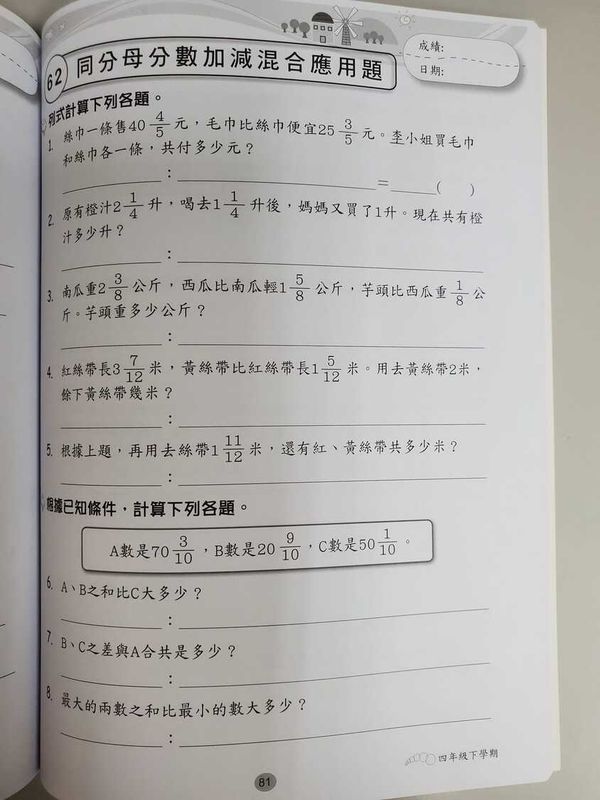 成績:
日期:
62 同分母分數加減混合應用題
列式計算下列各題。
1. 絲巾一條售40 4/5 元，毛巾比絲巾便宜25 3/5 元。李小姐買毛巾
和絲巾各一條，共付多少元？
: = ( )
2. 原有橙汁2 1/4 升，喝去1 1/4 升後，媽媽又買了1升。現在共有橙
汁多少升？
:
3. 南瓜重2 3/8 公斤，西瓜比南瓜輕1 5/8 公斤，芋頭比西瓜重 1/8 公
斤。芋頭重多少公斤？
:
4. 紅絲帶長3 7/12 米，黃絲帶比紅絲帶長1 5/12 米。用去黃絲帶2米，
餘下黃絲帶幾米？
:
5. 根據上題，再用去絲帶1 11/12 米，還有紅、黃絲帶共多少米？
:
根據已知條件，計算下列各題。
A數是70 3/10，B數是20 9/10，C數是50 1/10。
6. A、B之和比C大多少？
:
7. B、C之差與A合共是多少？
:
8. 最大的兩數之和比最小的數大多少？
:
四年級下學期
81